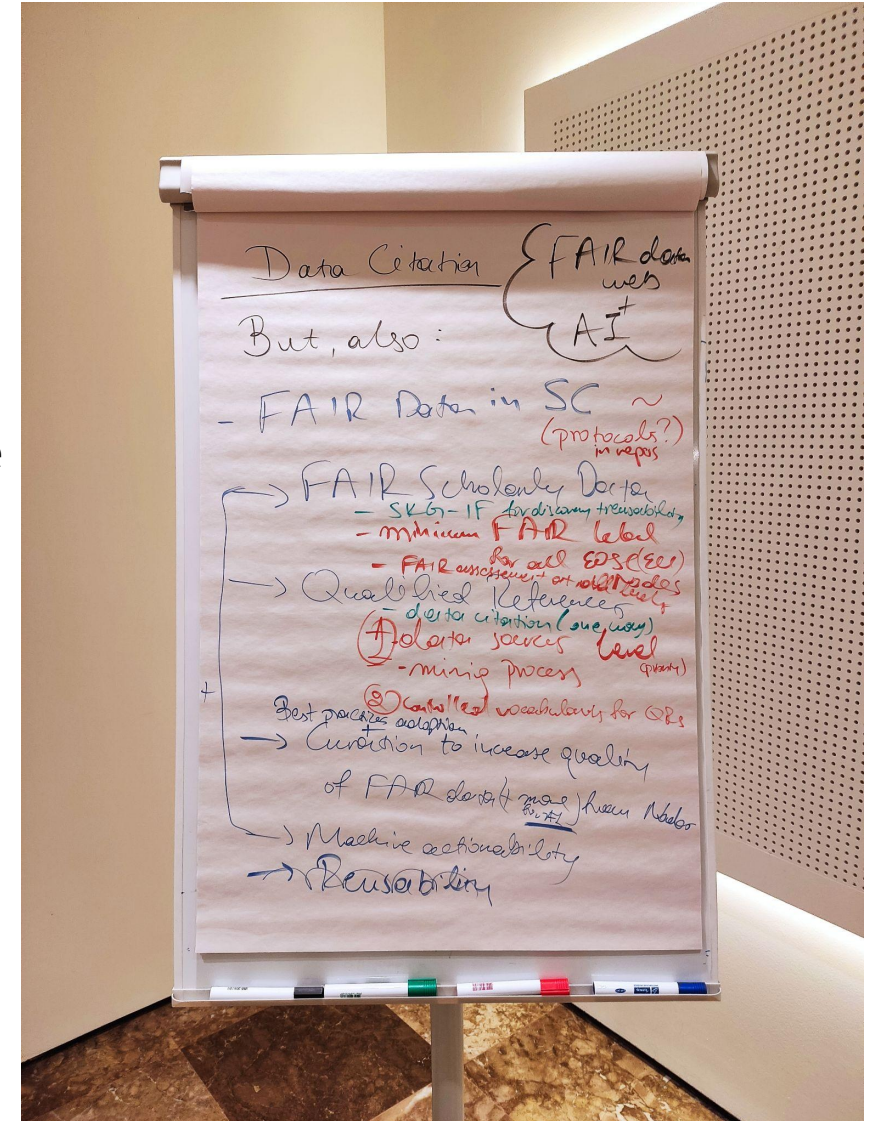 Data Citation
FAIR data
web
+
AI
But, also:
- FAIR Data in SC ~
(protocols?)
in repos
→ FAIR Scholarly Data
- SKG-IF for discovery + reusability
- minimum FAIR label
for all EOSC (EU)
- FAIR assessment at all Nodes
→ Qualified References
- data citation (one way)
① data sources level
- mining process
② controlled vocabulary for QRs
+
Best practices adoption
+
→ Curation to increase quality
of FAIR data (+ more) from Nodes
for AI
→ Machine actionability
→ Reusability